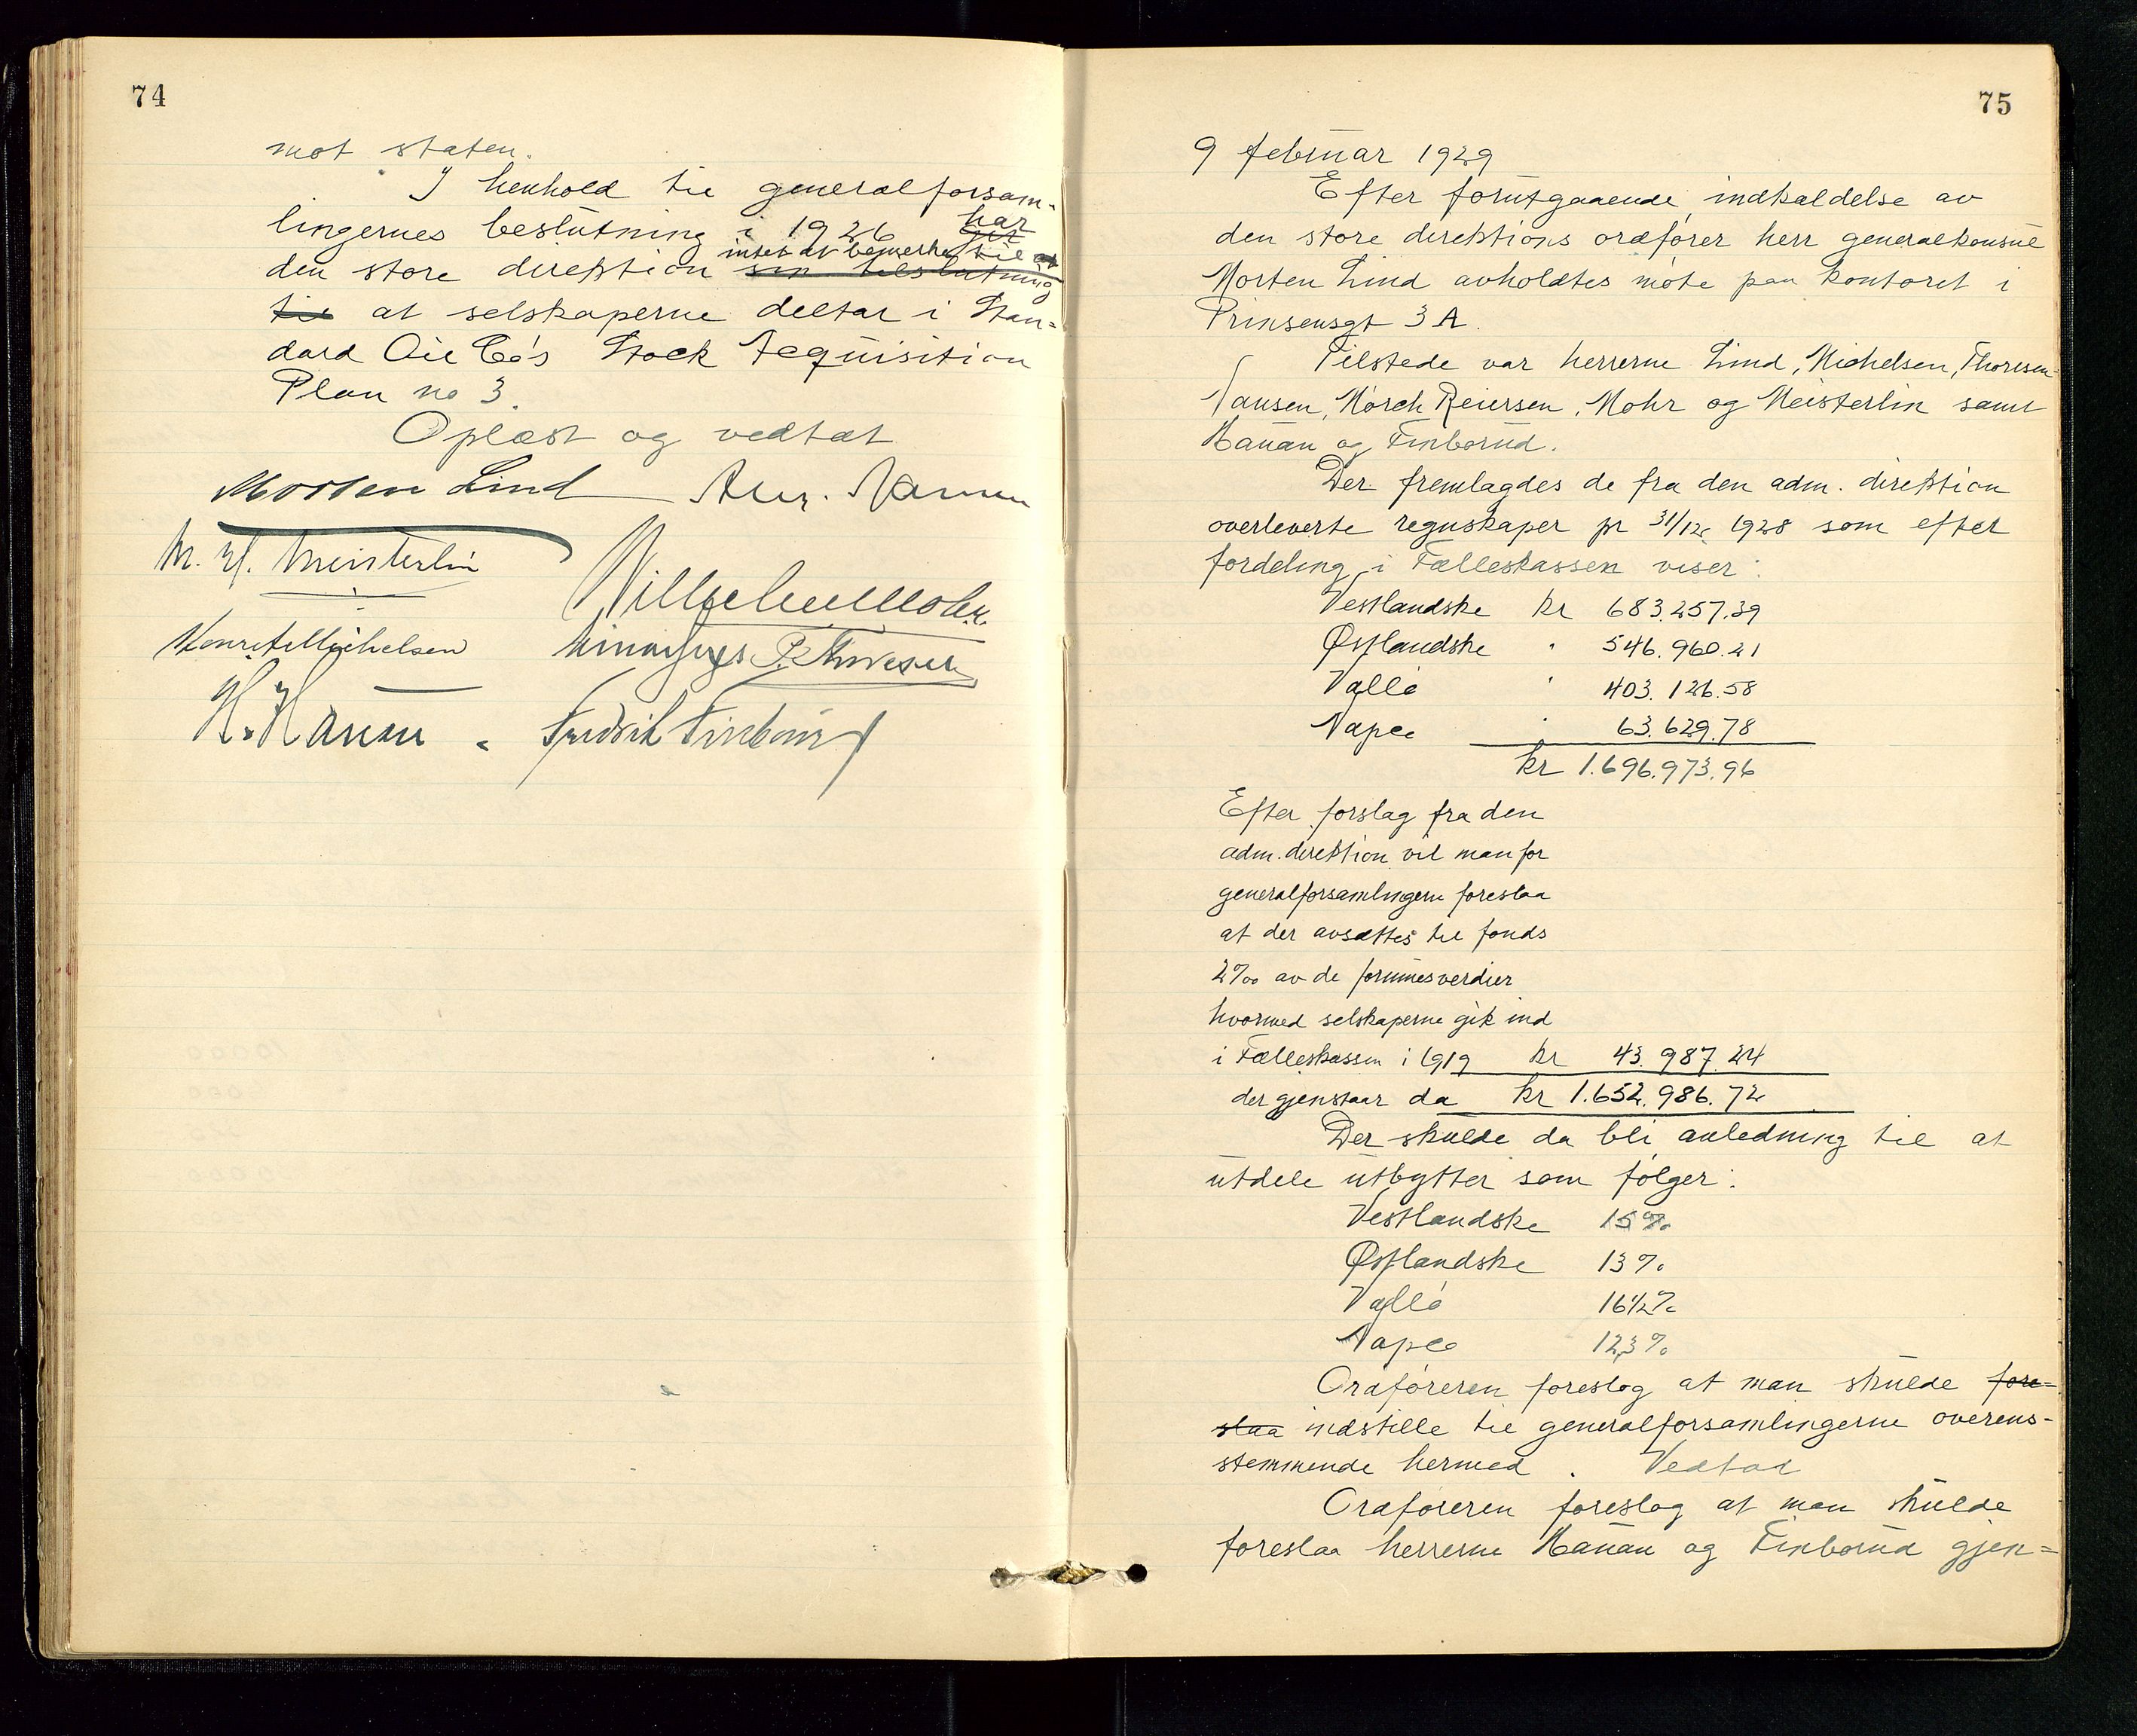 74
mot staten.
I henhold til generalforsam-
lingernes beslutning i 1926 har
gir
intet at bemerke til at
den store direktion sin tilslutning
til at selskaperne deltar i Stan-
dard Oil Co's Stock Acquisition
Plan no 3.
Oplæst og vedtat
Morten Lind
M. H. Meisterlin
Wilhelm Mohr
Michelsen
H. Hauan
Fredrik Finborud
75
9 februar 1929
Efter forutgaaende indkaldelse av
den store direktions ordfører herr generalkonsul
Morten Lind avholdtes møte paa kontoret i
Prinsensgt 3 A.
Tilstede var herrerne Lind, Michelsen, Thoresen
Jansen, Mørch Reiersen, Mohr og Meisterlin samt
Hauan og Finborud.
Der fremlagdes de fra den adm. direktion
overleverte regnskaper pr 31/12 1928 som efter
fordeling i Fælleskassen viser:
Vestlandske kr 683.257.39
Østlandske " 546.960.21
Vallø " 403.126.58
Napco " 63.629.78
kr 1.696.973.96
Efter forslag fra den
adm. direktion vil man for
generalforsamlingerne foreslaa
at der avsættes til fonds
2‰ av de formuesverdier
hvormed selskaperne gik ind
i Fælleskassen i 1919 kr 43.987.24
der gjenstaar da kr 1.652.986.72
Der skulde da bli anledning til at
utdele utbytter som følger:
Vestlandske 15%
Østlandske 13%
Vallø 16½%
Napco 12,3%
Ordføreren foreslog at man skulde fore-
slaa indstille til generalforsamlingerne overens-
stemmende hermed. Vedtat
Ordføreren foreslog at man skulde
foreslaa herrerne Hauan og Finborud gjen-